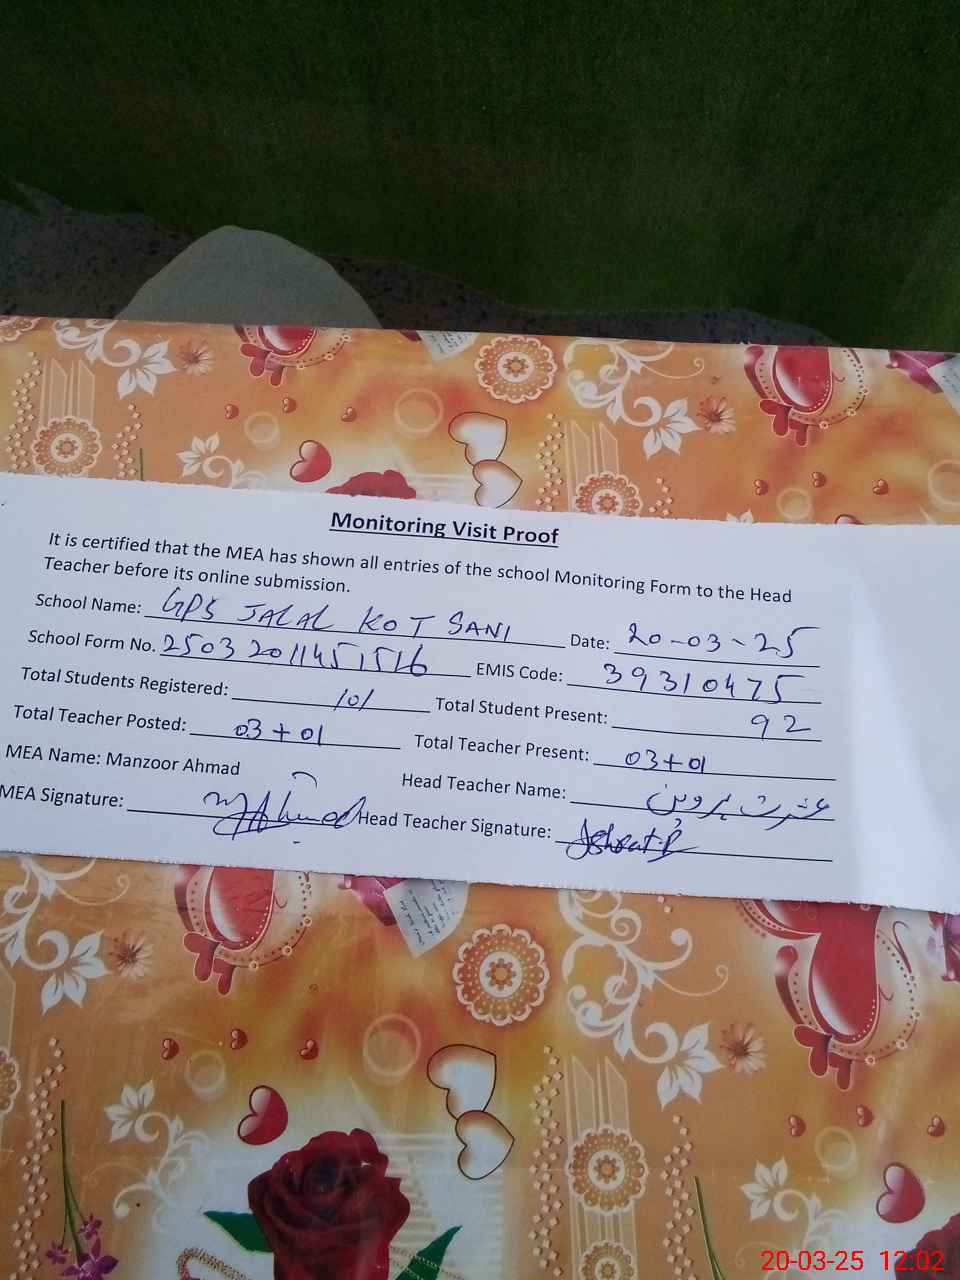 Monitoring Visit Proof
It is certified that the MEA has shown all entries of the school Monitoring Form to the Head
Teacher before its online submission.
School Name: GPS JALAL KOT SANI Date: 20-03-25
School Form No. 2503201145151 6 EMIS Code: 39310475
Total Students Registered: 101 Total Student Present: 92
Total Teacher Posted: 03+01 Total Teacher Present: 03+01
MEA Name: Manzoor Ahmad Head Teacher Name: عشرت پروین
MEA Signature: MAhmad Head Teacher Signature: Ishrat P
20-03-25 12:02